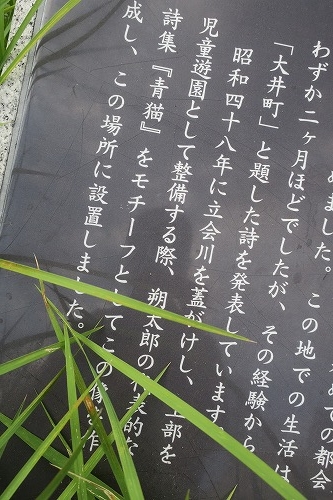 ての都会
めました。この地での生活は
わずか二ヶ月ほどでしたが、その経験から
「大井町」と題した詩を発表しています
昭和四十八年に立会川を蓋がけし、上部を
児童遊園として整備する際、朔太郎の代表的な
詩集『青猫』をモチーフとしてこの像を作
成し、この場所に設置しました。